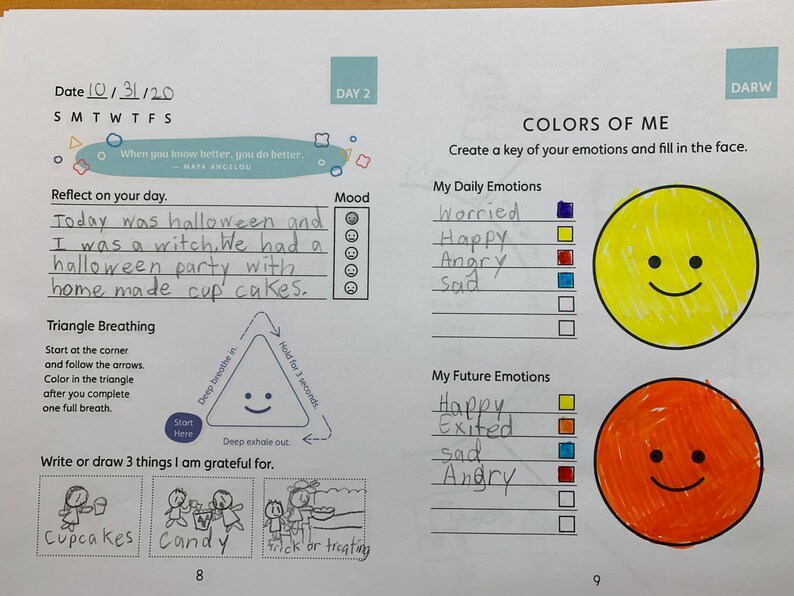 Date 10 / 31 / 20
DAY 2
S M T W T F S
When you know better, you do better.
— MAYA ANGELOU
Reflect on your day.
Mood
Today was halloween and
I was a witch. We had a
halloween party with
home made cup cakes.
Triangle Breathing
Start at the corner
and follow the arrows.
Color in the triangle
after you complete
one full breath.
Deep breathe in.
Hold for 3 seconds.
Start
Here
Deep exhale out.
Write or draw 3 things I am grateful for.
Cupcakes
Candy
Trick or treating
8
DARW
COLORS OF ME
Create a key of your emotions and fill in the face.
My Daily Emotions
Worried
Happy
Angry
Sad
My Future Emotions
Happy
Exited
sad
Angry
9